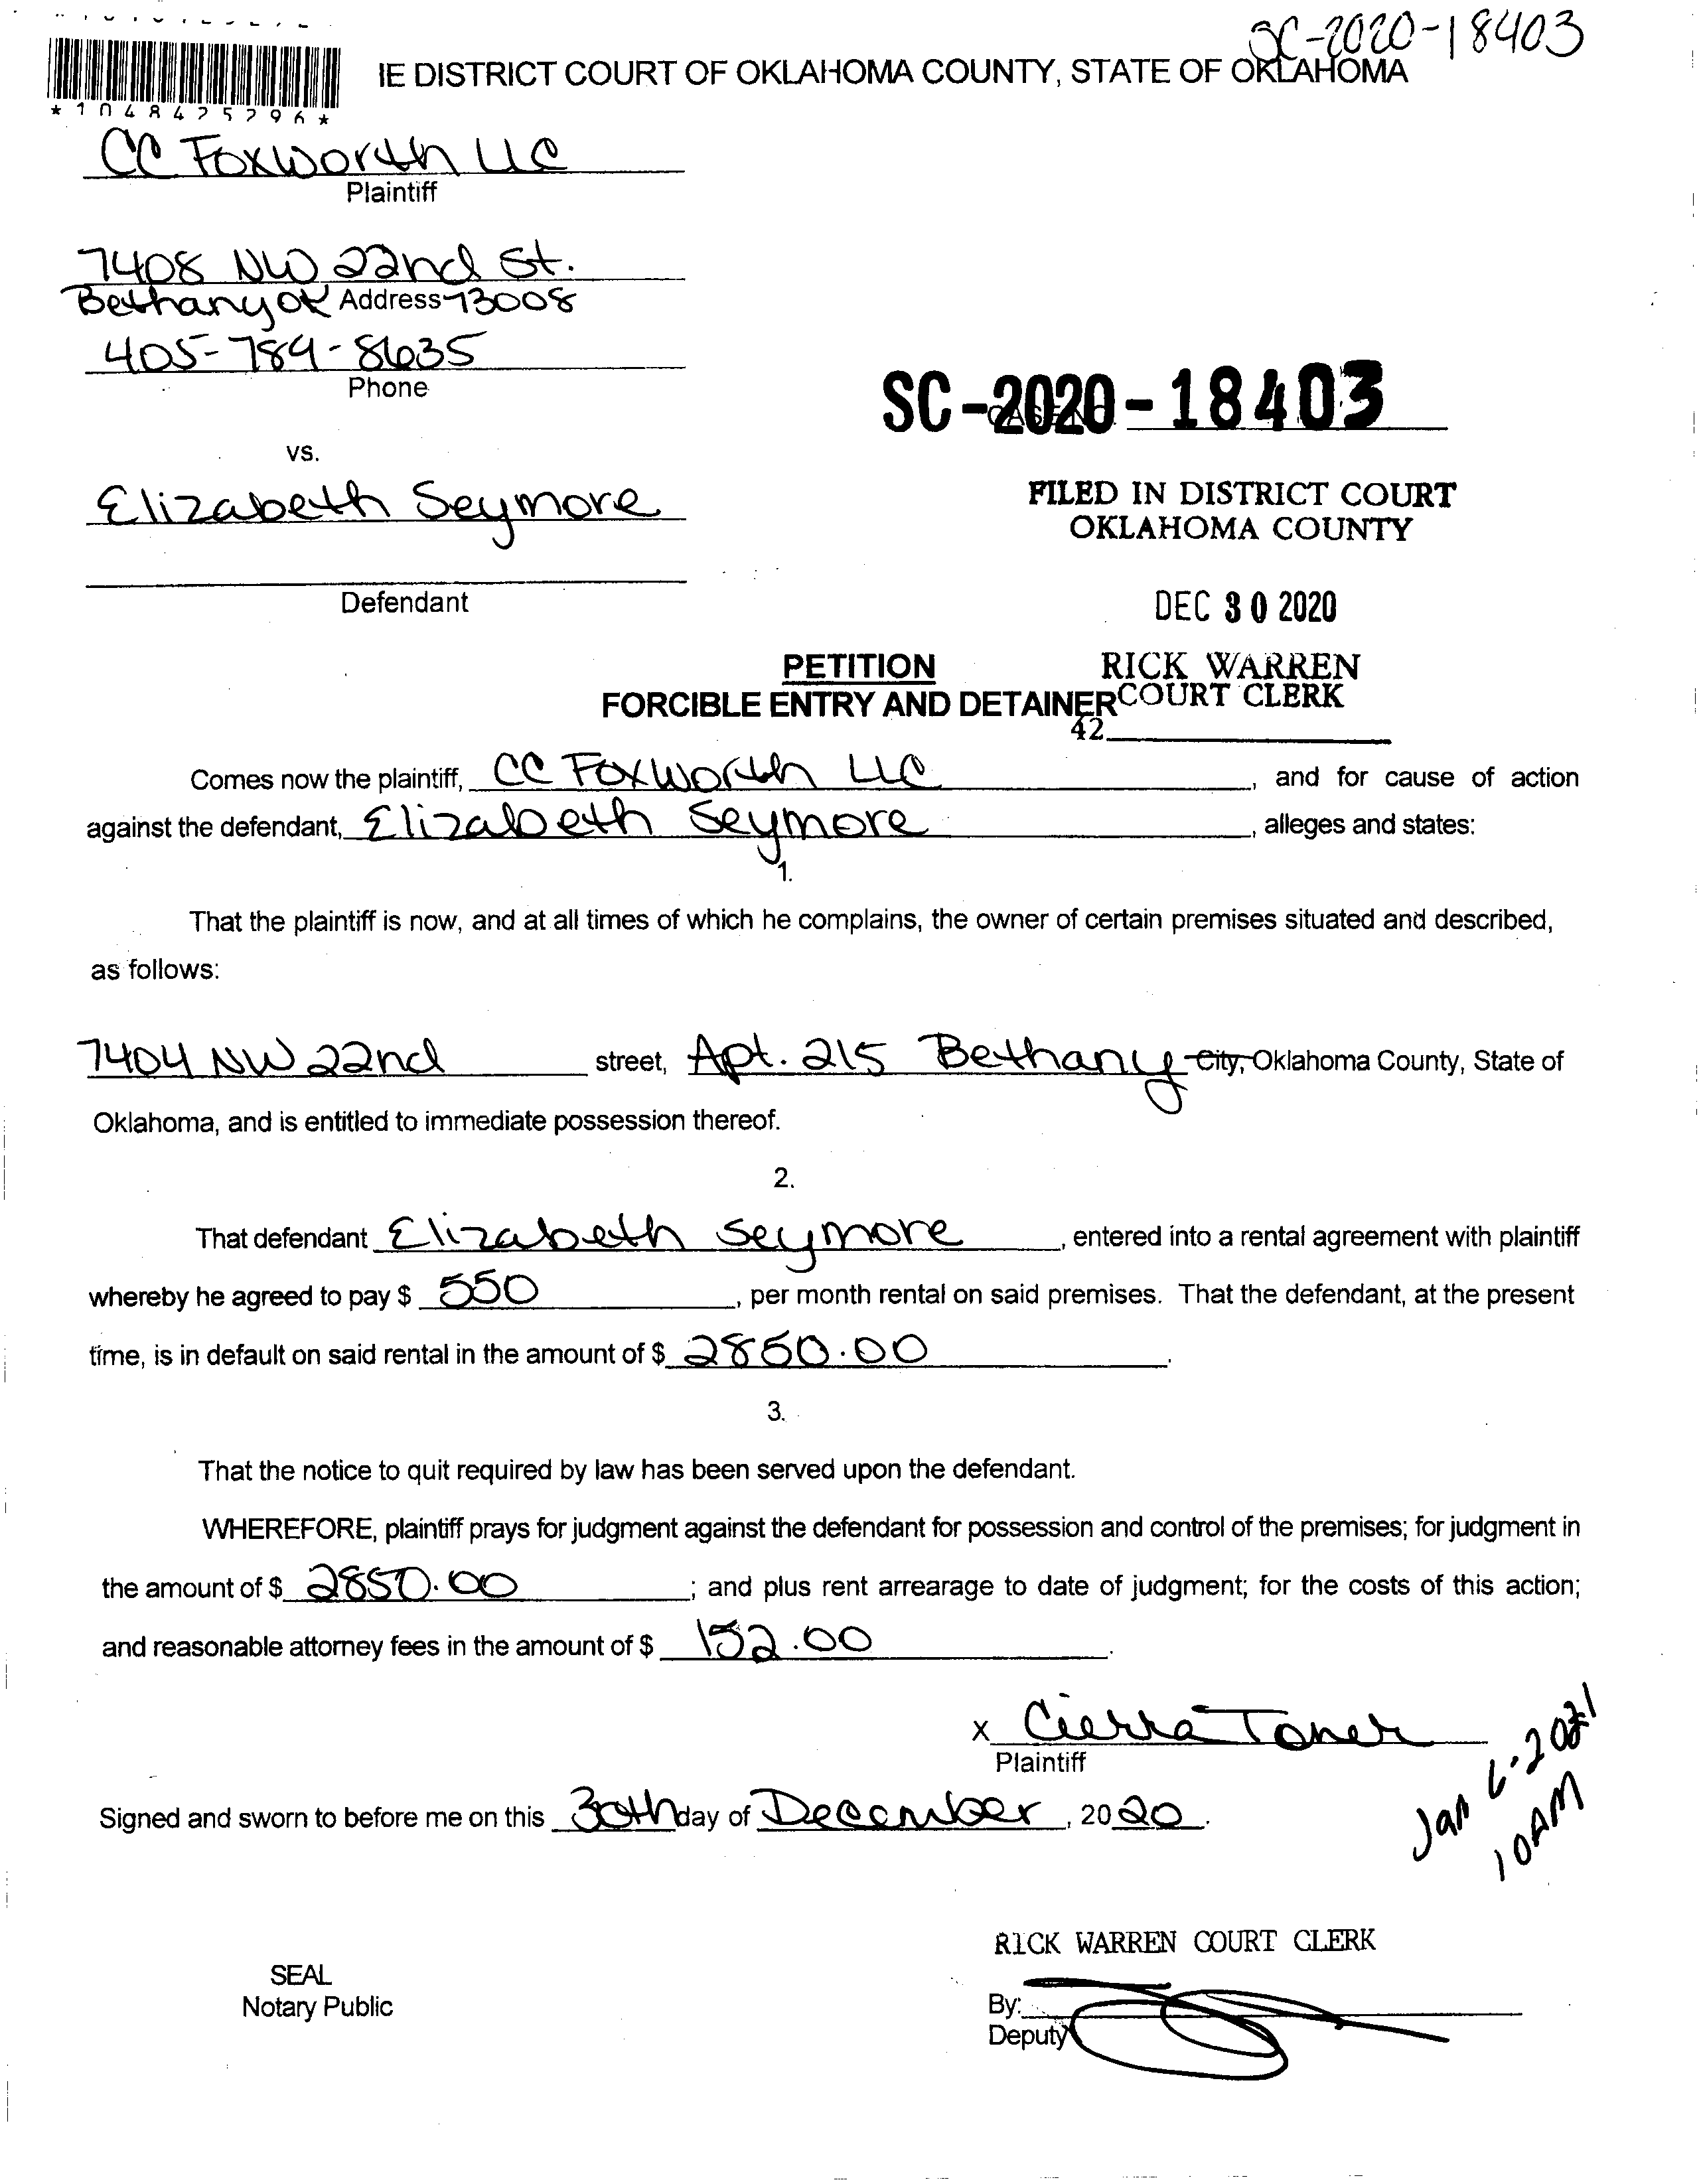 SC-2020-18403
IE DISTRICT COURT OF OKLAHOMA COUNTY, STATE OF OKLAHOMA
*1048425296*
CC Foxworth LLC
Plaintiff
7408 NW 22nd St.
Bethany OK Address 73008
405-789-8635
Phone
SC-2020-18403
CASE NO.
vs.
Elizabeth Seymore
FILED IN DISTRICT COURT
OKLAHOMA COUNTY
Defendant
DEC 30 2020
PETITION
RICK WARREN
FORCIBLE ENTRY AND DETAINER
COURT CLERK
42
Comes now the plaintiff, CC Foxworth LLC, and for cause of action
against the defendant, Elizabeth Seymore, alleges and states:
1.
That the plaintiff is now, and at all times of which he complains, the owner of certain premises situated and described,
as follows:
7404 NW 22nd street, Apt. 215 Bethany City, Oklahoma County, State of
Oklahoma, and is entitled to immediate possession thereof.
2.
That defendant Elizabeth Seymore, entered into a rental agreement with plaintiff
whereby he agreed to pay $ 550, per month rental on said premises. That the defendant, at the present
time, is in default on said rental in the amount of $ 2850.00.
3.
That the notice to quit required by law has been served upon the defendant.
WHEREFORE, plaintiff prays for judgment against the defendant for possession and control of the premises; for judgment in
the amount of $ 2850.00; and plus rent arrearage to date of judgment; for the costs of this action;
and reasonable attorney fees in the amount of $ 152.00.
x Cierra Toner
Plaintiff
Signed and sworn to before me on this 30th day of December, 2020.
Jan 6-2021
10AM
RICK WARREN COURT CLERK
SEAL
Notary Public
By:
Deputy